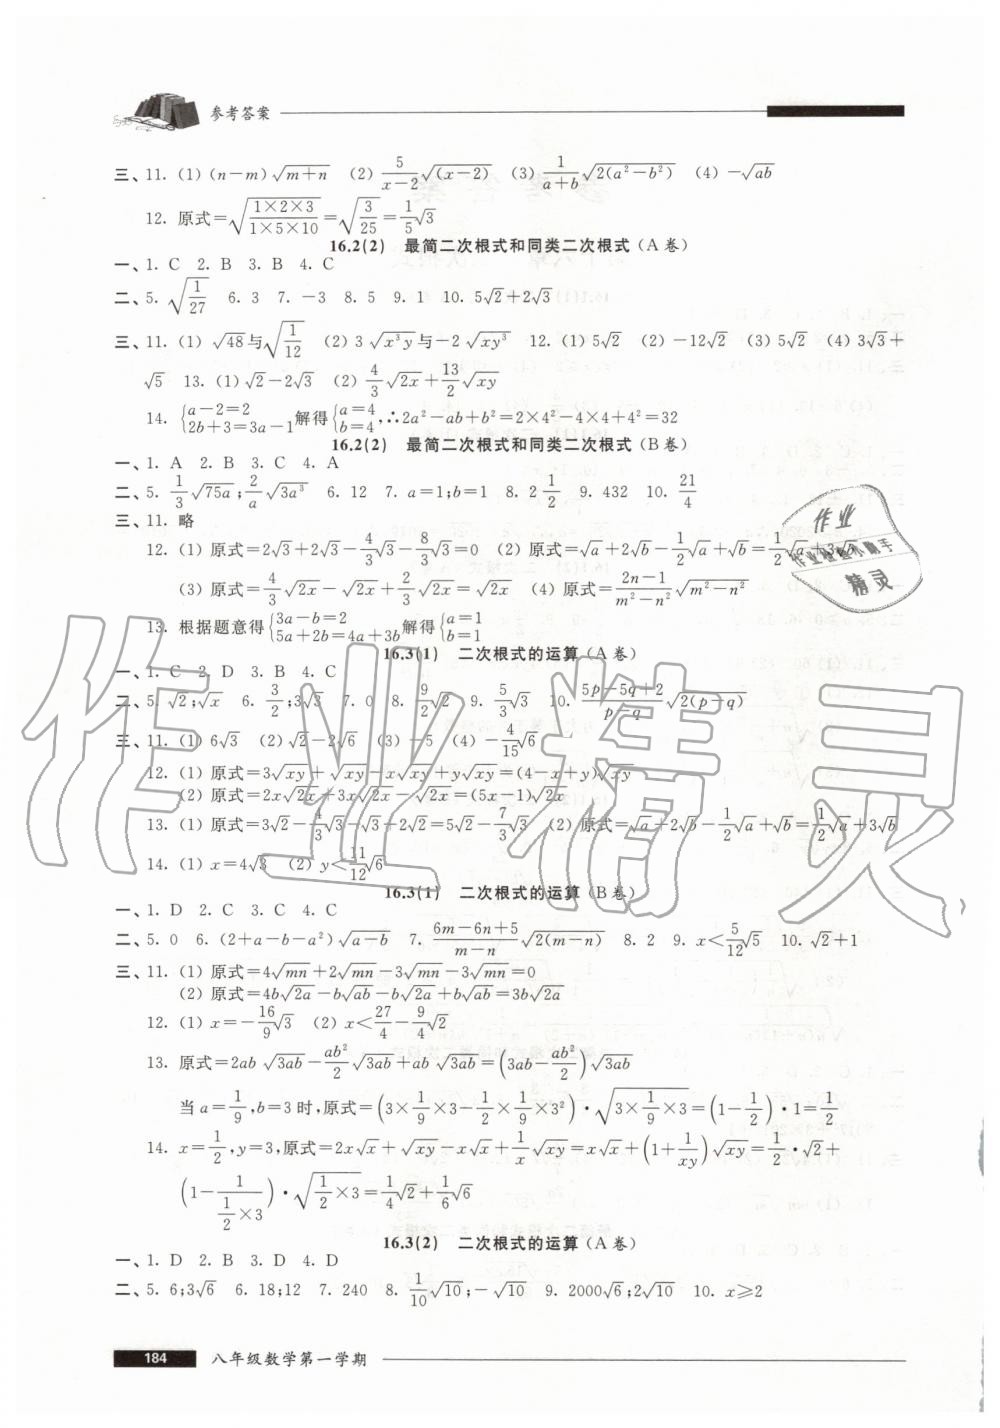 参考答案
三、11. (1) (n-m)√(m+n) (2) 5/(x-2) √(x-2) (3) 1/(a+b) √(2(a²-b²)) (4) -√(ab)
12. 原式=√((1×2×3)/(1×5×10))=√(3/25)=1/5 √3
16.2(2) 最简二次根式和同类二次根式(A卷)
一、1. C 2. B 3. B 4. C
二、5. √(1/27) 6. 3 7. -3 8. 5 9. 1 10. 5√2+2√3
三、11. (1) √48与√(1/12) (2) 3√(x³y)与-2√(xy³) 12. (1) 5√2 (2) -12√2 (3) 5√2 (4) 3√3+
√5 13. (1) √2-2√3 (2) 4/3 √(2x)+13/2 √(xy)
14. {a-2=2 2b+3=3a-1 解得{a=4, b=4, ∴2a²-ab+b²=2×4²-4×4+4²=32
16.2(2) 最简二次根式和同类二次根式(B卷)
一、1. A 2. B 3. C 4. A
二、5. 1/3 √(75a); 2/a √(3a³) 6. 12 7. a=1;b=1 8. 2 1/2 9. 432 10. 21/4
三、11. 略
12. (1) 原式=2√3+2√3-4/3 √3-8/3 √3=0 (2) 原式=√a+2√b-1/2 √a+√b=1/2 √a+3√b
(3) 原式=4/3 √(2x)-√(2x)+2/3 √(2x)=√(2x) (4) 原式=(2n-1)/(m²-n²) √(m²-n²)
13. 根据题意得{3a-b=2 5a+2b=4a+3b 解得{a=1 b=1
16.3(1) 二次根式的运算(A卷)
一、1. C 2. D 3. B 4. C
二、5. √2;√x 6. 3/2;3√3 7. 0 8. 9/2 √2 9. 5/3 √3 10. (5p-5q+2)/(p-q) √(2(p-q))
三、11. (1) 6√3 (2) √2-2√6 (3) -5 (4) -4/15 √6
12. (1) 原式=3√(xy)+√(xy)-x√(xy)+y√(xy)=(4-x+y)√(xy)
(2) 原式=2x√(2x)+3x√(2x)-√(2x)=(5x-1)√(2x)
13. (1) 原式=3√2-4/3 √3-√3+2√2=5√2-7/3 √3 (2) 原式=√a+2√b-1/2 √a+√b=1/2 √a+3√b
14. (1) x=4√3 (2) y<11/12 √6
16.3(1) 二次根式的运算(B卷)
一、1. D 2. C 3. C 4. C
二、5. 0 6. (2+a-b-a²)√(a-b) 7. (6m-6n+5)/(m-n) √(2(m-n)) 8. 2 9. x<5/12 √5 10. √2+1
三、11. (1) 原式=4√(mn)+2√(mn)-3√(mn)-3√(mn)=0
(2) 原式=4b√(2a)-b√(ab)-b√(2a)+b√(ab)=3b√(2a)
12. (1) x=-16/9 √3 (2) x<27/4-9/4 √2
13. 原式=2ab√(3ab)-ab²/2 √(3ab)+ab√(3ab)=(3ab-ab²/2)√(3ab)
当a=1/9,b=3时,原式=(3×1/9×3-1/2×1/9×3²)·√(3×1/9×3)=(1-1/2)·1=1/2
14. x=1/2,y=3,原式=2x√x+√(xy)-x√x+1/x √(xy)=x√x+(1+1/(xy))√(xy)=1/2·√2+
(1-1/(1/2×3))·√(1/2×3)=1/4 √2+1/6 √6
16.3(2) 二次根式的运算(A卷)
一、1. D 2. B 3. D 4. D
二、5. 6;3√6 6. 18;12 7. 240 8. 1/10 √10;-√10 9. 2000√6;2√10 10. x≥2
184 八年级数学第一学期
作业精灵
作业
精灵